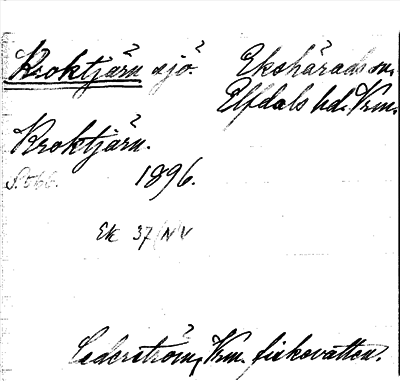 Kroktjärn sjö. Ekshärads sn.
Elfdals hd. Vrm.
Kroktjärn.
1896.
Ek 37 NV
Cederström, Vrm. fiskevatten.